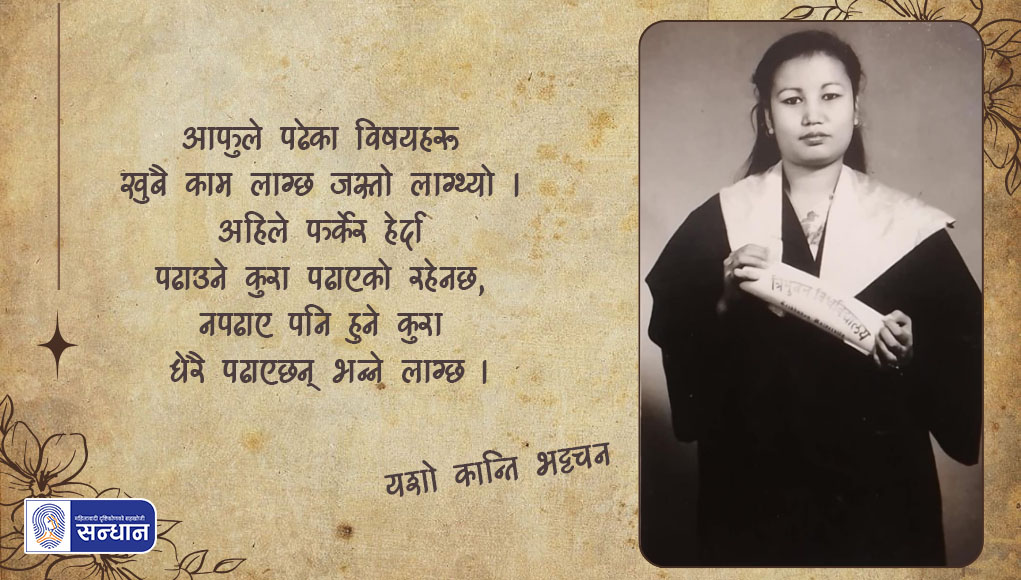 आफुले पढेका विषयहरू
खुबै काम लाग्छ जस्तो लाग्थ्यो ।
अहिले फर्केर हेर्दा
पढाउने कुरा पढाएको रहेनछ,
नपढाए पनि हुने कुरा
धेरै पढाएछन् भन्ने लाग्छ ।
यशो कान्ति भट्टचन
त्रिभुवन विश्वविद्यालय
महिलावादी दृष्टिकोणको सहखोजी
सन्धान